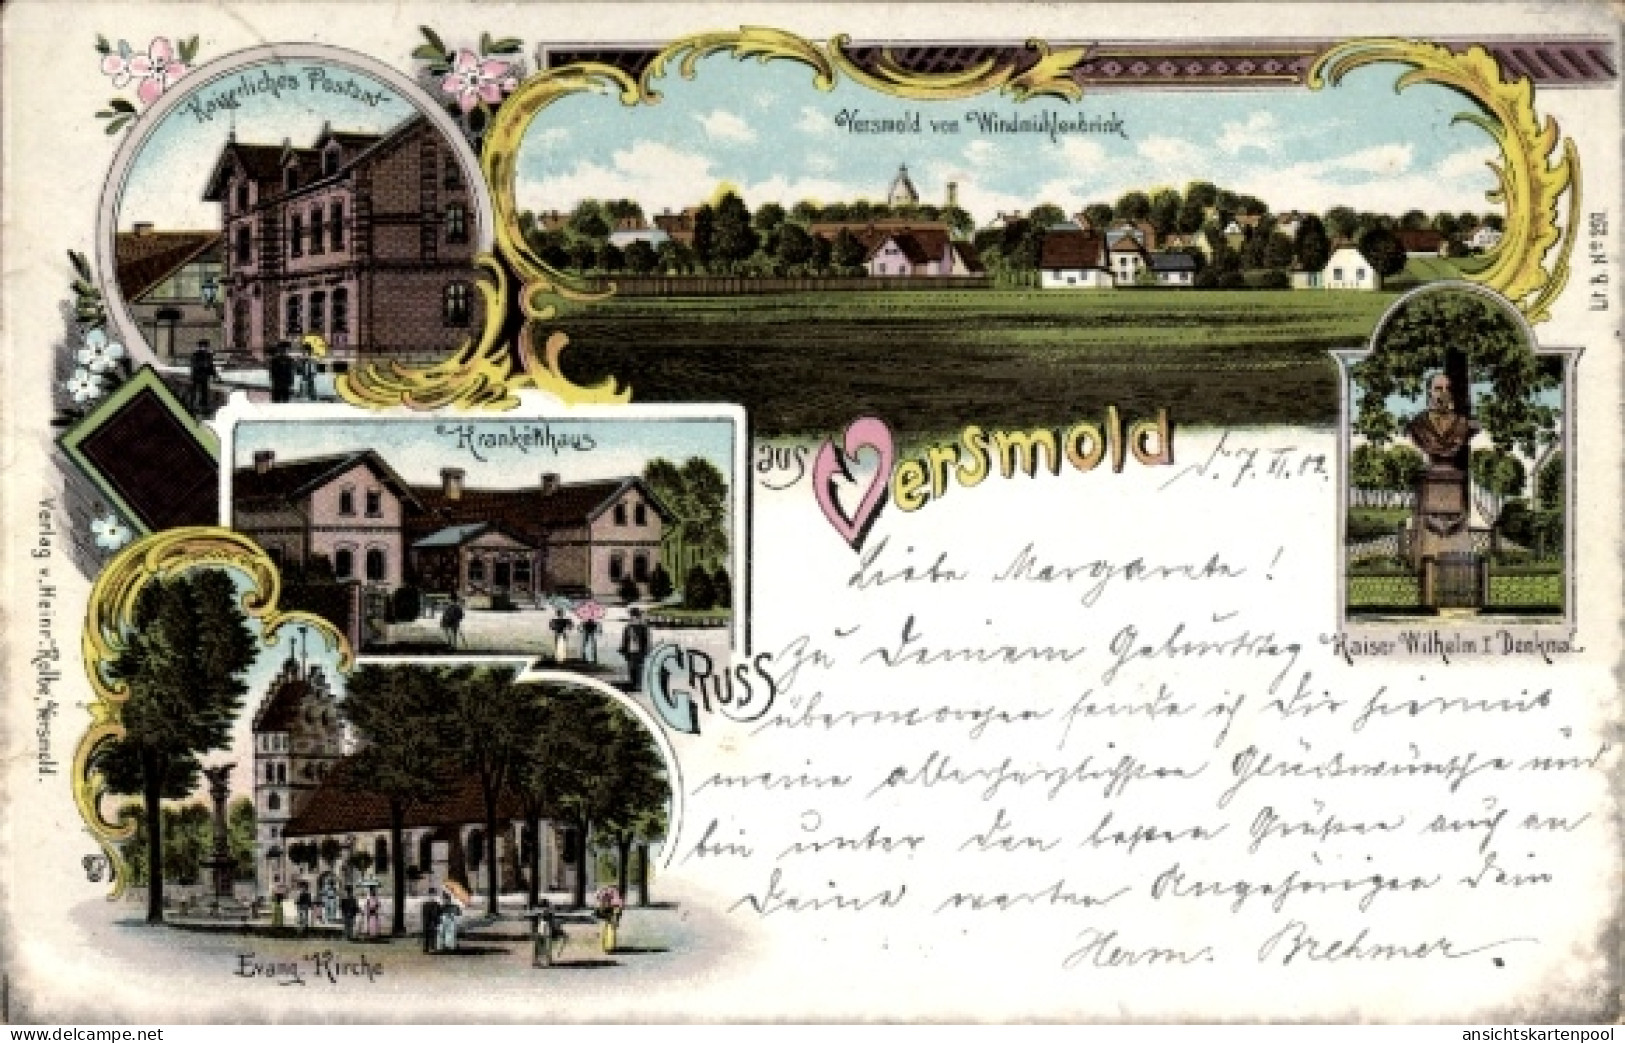 Kaiserliches Postamt
Versmold von Windmühlenbrink
Lit. B. Nº 297.
Krankenhaus
GRUSS
aus Versmold
d. 7. VI. 02.
Kaiser Wilhelm I Denkmal
Liebe Margarete!
Zu Deinem Geburtstag
übermorgen sende ich Dir hiermit
meine allerherzlichsten Glückwünsche und
bin unter den besten Grüßen auch an
Deine werten Angehörigen Dein
Herm. Brehmer.
Evang. Kirche
Verlag v. Heinr. Kolbe, Versmold.
www.delcampe.net
ansichtskartenpool